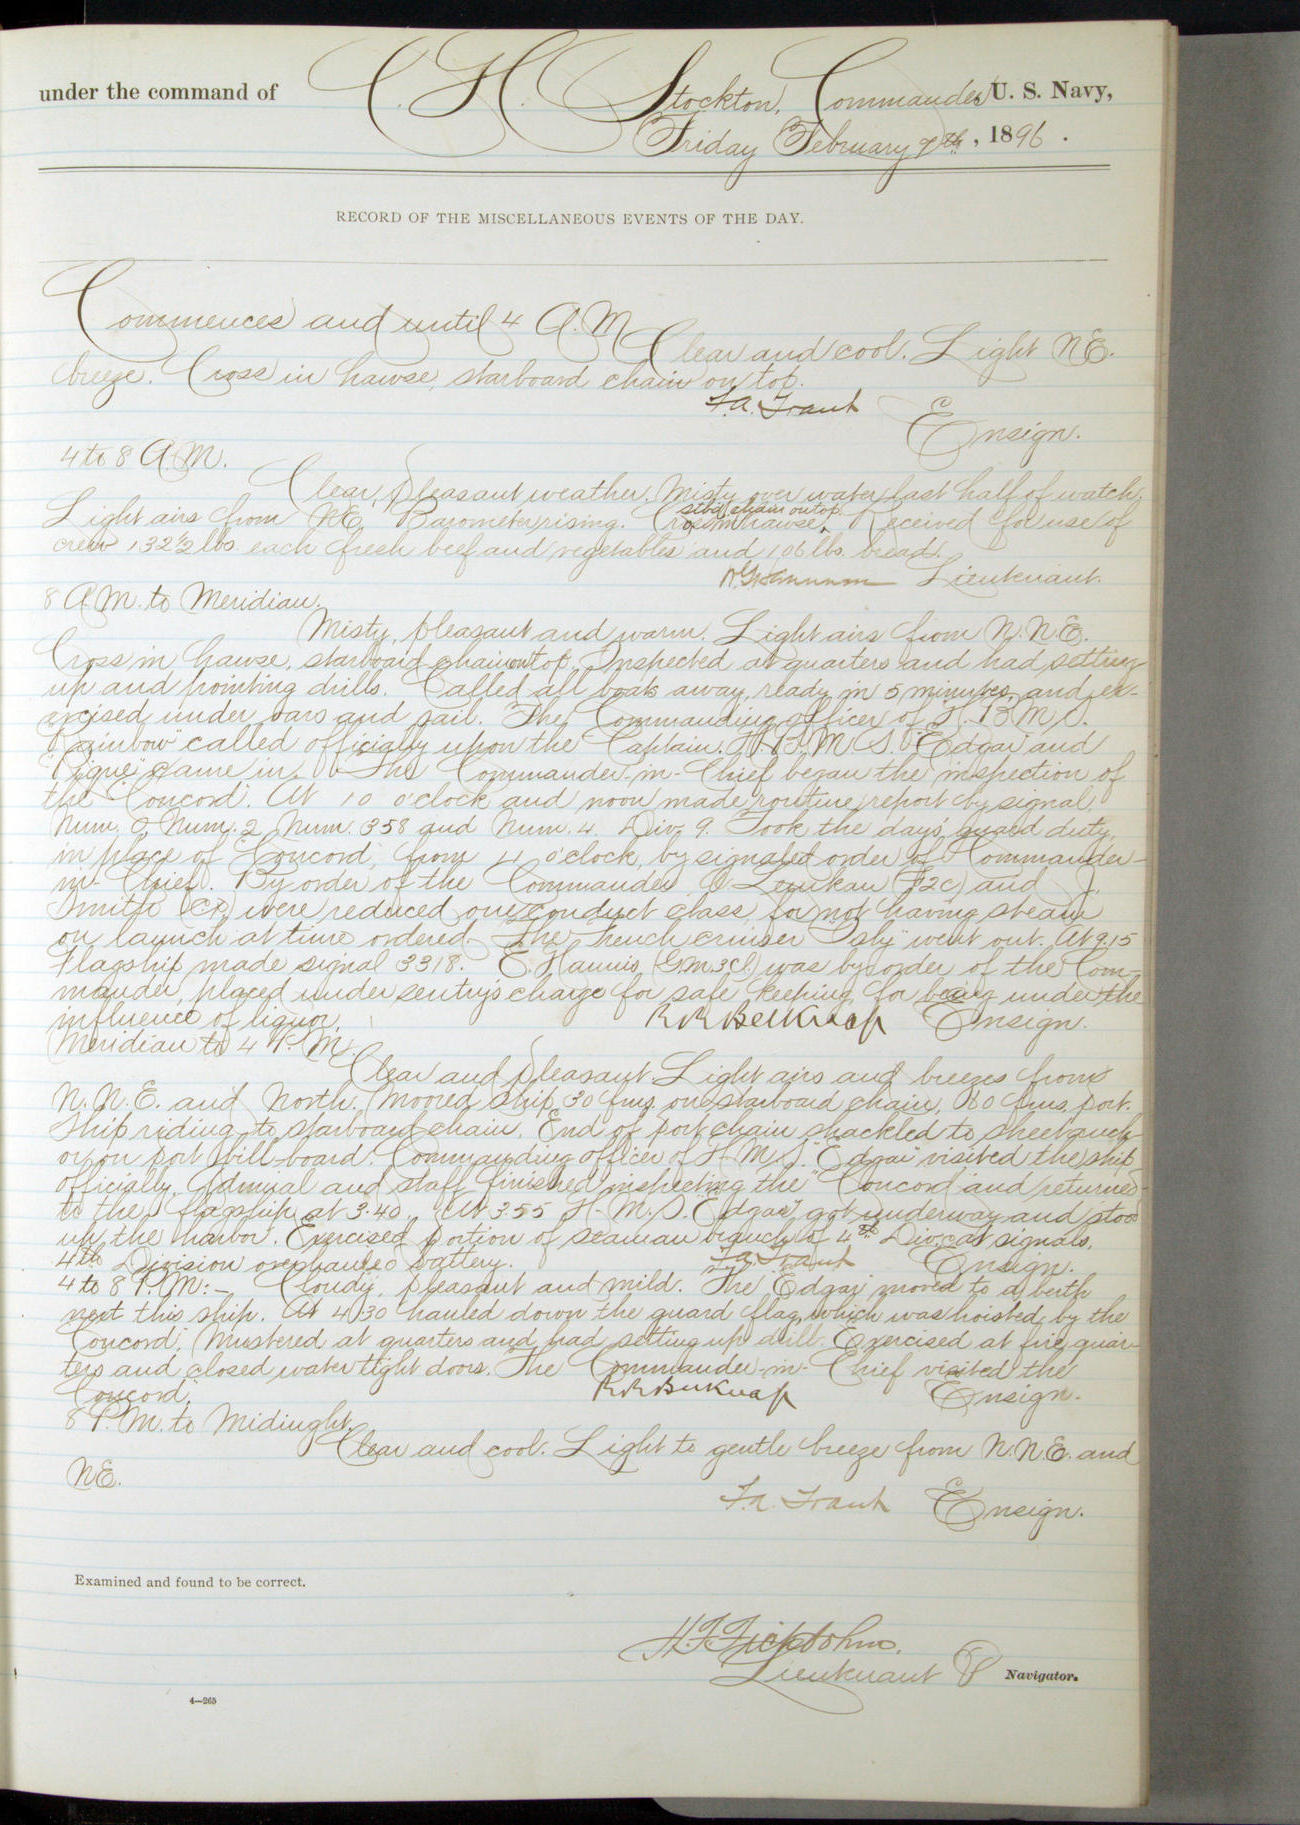 under the command of C. H. Stockton, Commander, U. S. Navy,
Friday February 7th, 1896.
RECORD OF THE MISCELLANEOUS EVENTS OF THE DAY.
Commences and until 4 A.M.
Clear and cool. Light NE.
breeze. Cross in hawse, starboard chain on top.
F.A. Traut
Ensign.
4 to 8 A.M.
Clear, pleasant weather. Misty over water last half of watch.
stb'd chain on top.
Light airs from NE. Barometer rising. Cross in hawse, Received for use of
crew 132 1/2 lbs. each fresh beef and vegetables and 106 lbs. bread.
Lieutenant.
8 A.M. to Meridian.
Misty, pleasant and warm. Light airs from N.N.E.
Cross in hawse, starboard chain on top. Inspected at quarters and had setting
up and pointing drills. Called all boats away, ready in 5 minutes, and ex-
ercised under oars and sail. The Commanding officer of H.B.M.S.
"Rainbow" called officially upon the Captain. H.B.M.S. "Edgar" and
"Pique" came in. The Commander-in-Chief began the inspection of
the "Concord". At 10 o'clock and noon made routine report by signal,
Num. 0 Num. 2 Num. 358 and Num. 4. Div. 9. Took the day's guard duty,
in place of "Concord", from 11 o'clock, by signaled order of Commander-
in-Chief. By order of the Commander O. Lenkau (F2c) and J.
Smith (CP) were reduced one conduct class for not having steam
on launch at time ordered. The French cruiser "Isly" went out. At 9.15
Flagship made signal 3318. E. Hannis, (G.M.3Cl.) was by order of the Com-
mander, placed under sentry's charge for safe keeping for being under the
influence of liquor.
R R Belknap Ensign.
Meridian to 4 P.M.
Clear and pleasant. Light airs and breezes from
N.N.E. and North. Moored ship, 30 fms. on starboard chain, 80 fms. port.
Ship riding to starboard chain. End of port chain shackled to sheet anch-
or on port bill-board. Commanding officer of H.M.S. "Edgar" visited the ship
officially. Admiral and staff finished inspecting the "Concord" and returned
to the flagship at 3.40. At 3.55 H.M.S. "Edgar" got underway and stood
up the harbor. Exercised portion of seaman branch of 4th Div. at signals.
4th Division overhauled battery.
F.A. Traut Ensign.
4 to 8 P.M:- Cloudy, pleasant and mild. The "Edgar" moved to a berth
next this ship. At 4.30 hauled down the guard flag, which was hoisted by the
"Concord". Mustered at quarters and had setting up drill. Exercised at fire quar-
ters and closed water tight doors. The Commander-in-Chief visited the
"Concord."
R R Belknap Ensign.
8 P.M. to Midnight.
Clear and cool. Light to gentle breeze from N.N.E. and
NE.
F.A. Traut Ensign.
Examined and found to be correct.
Lieutenant & Navigator.
4—265